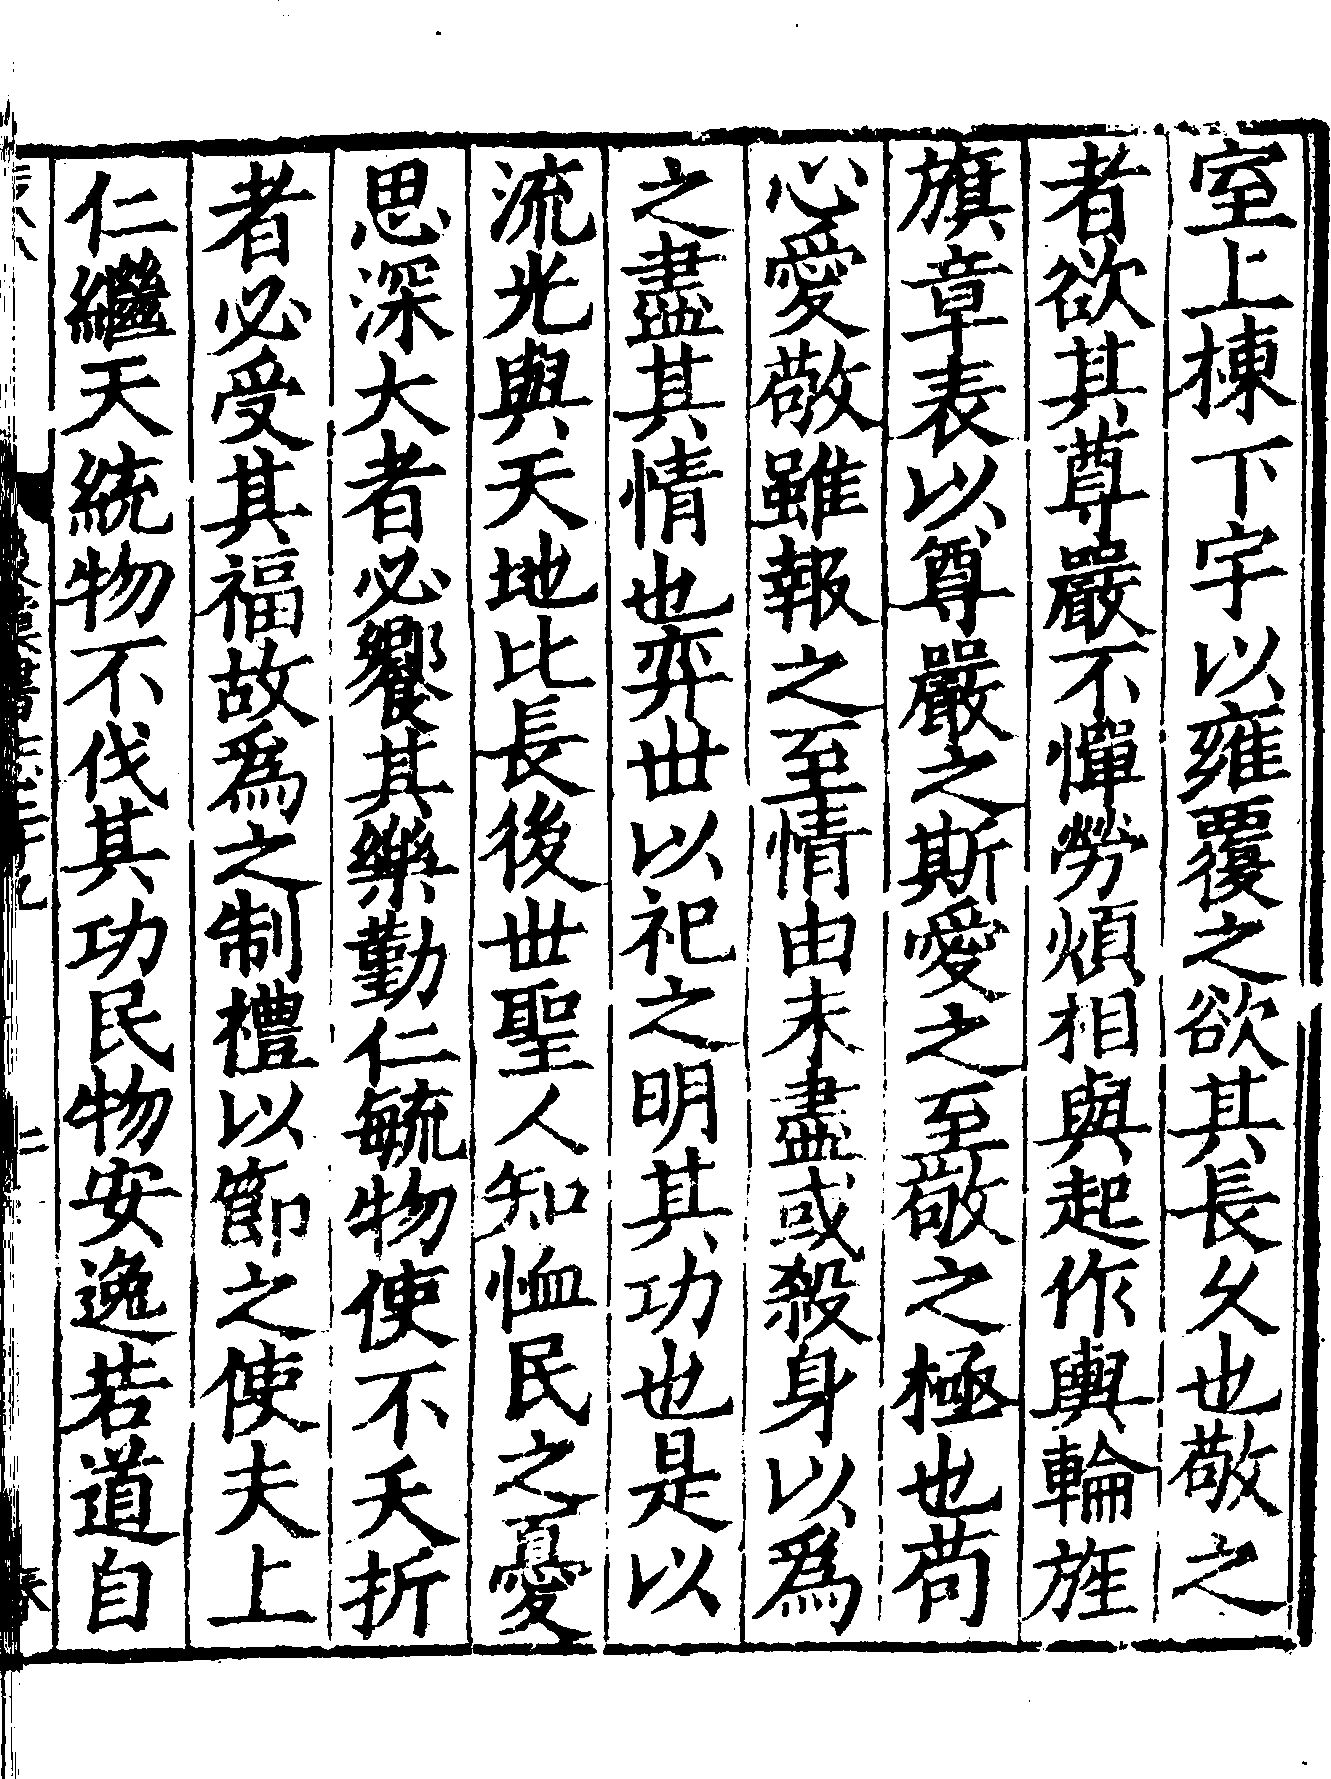 室上棟下宇以雍覆之欲其長久也敬之
者欲其尊嚴不憚勞煩相與起作輿輪旌
旗章表以尊嚴之斯愛之至敬之極也苟
心愛敬雖報之至情由未盡或殺身以爲
之盡其情也弈世以祀之明其功也是以
流光與天地比長後世聖人知恤民之憂
思深大者必饗其樂勤仁毓物使不夭折
者必受其福故爲之制禮以節之使夫上
仁繼天統物不伐其功民物安逸若道自